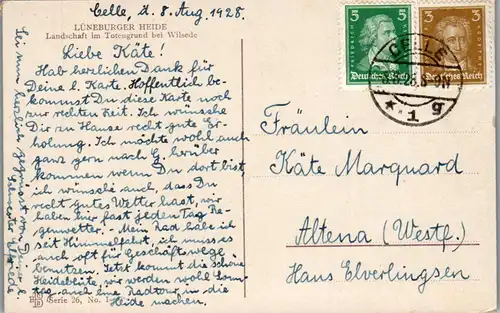 Celle, d. 8. Aug. 1928.
LÜNEBURGER HEIDE
Landschaft im Totengrund bei Wilsede
Liebe Käte!
Hab herzlichen Dank für
Deine l. Karte. Hoffentlich be-
kommst Du diese Karte noch
zur rechten Zeit. Ich wünsche
Dir zu Hause recht gute Er-
holung. Ich möchte wohl auch
ganz gern nach G. herüber
kommen wenn Du dort bist,
ich wünsche auch, dass Du
recht gutes Wetter hast, wir
haben hier fast jeden Tag Re-
genwetter. Mein Rad habe ich
seit Himmelfahrt, ich muss es
auch oft für Geschäftswege
benutzen. Jetzt kommt die schöne
Heideblüte, wir werden wohl dann
auch eine Radtour in die
Heide machen.
Sei nun herzlich gegrüsst von Deiner l.
Serie 26, No.
FRIEDRICH
5
5
Deutsches Reich
3
3
Deutsches Reich
CELLE
* 1 g
Fräulein
Käte Marquard
Altena (Westf.)
Hans Elverlingsen